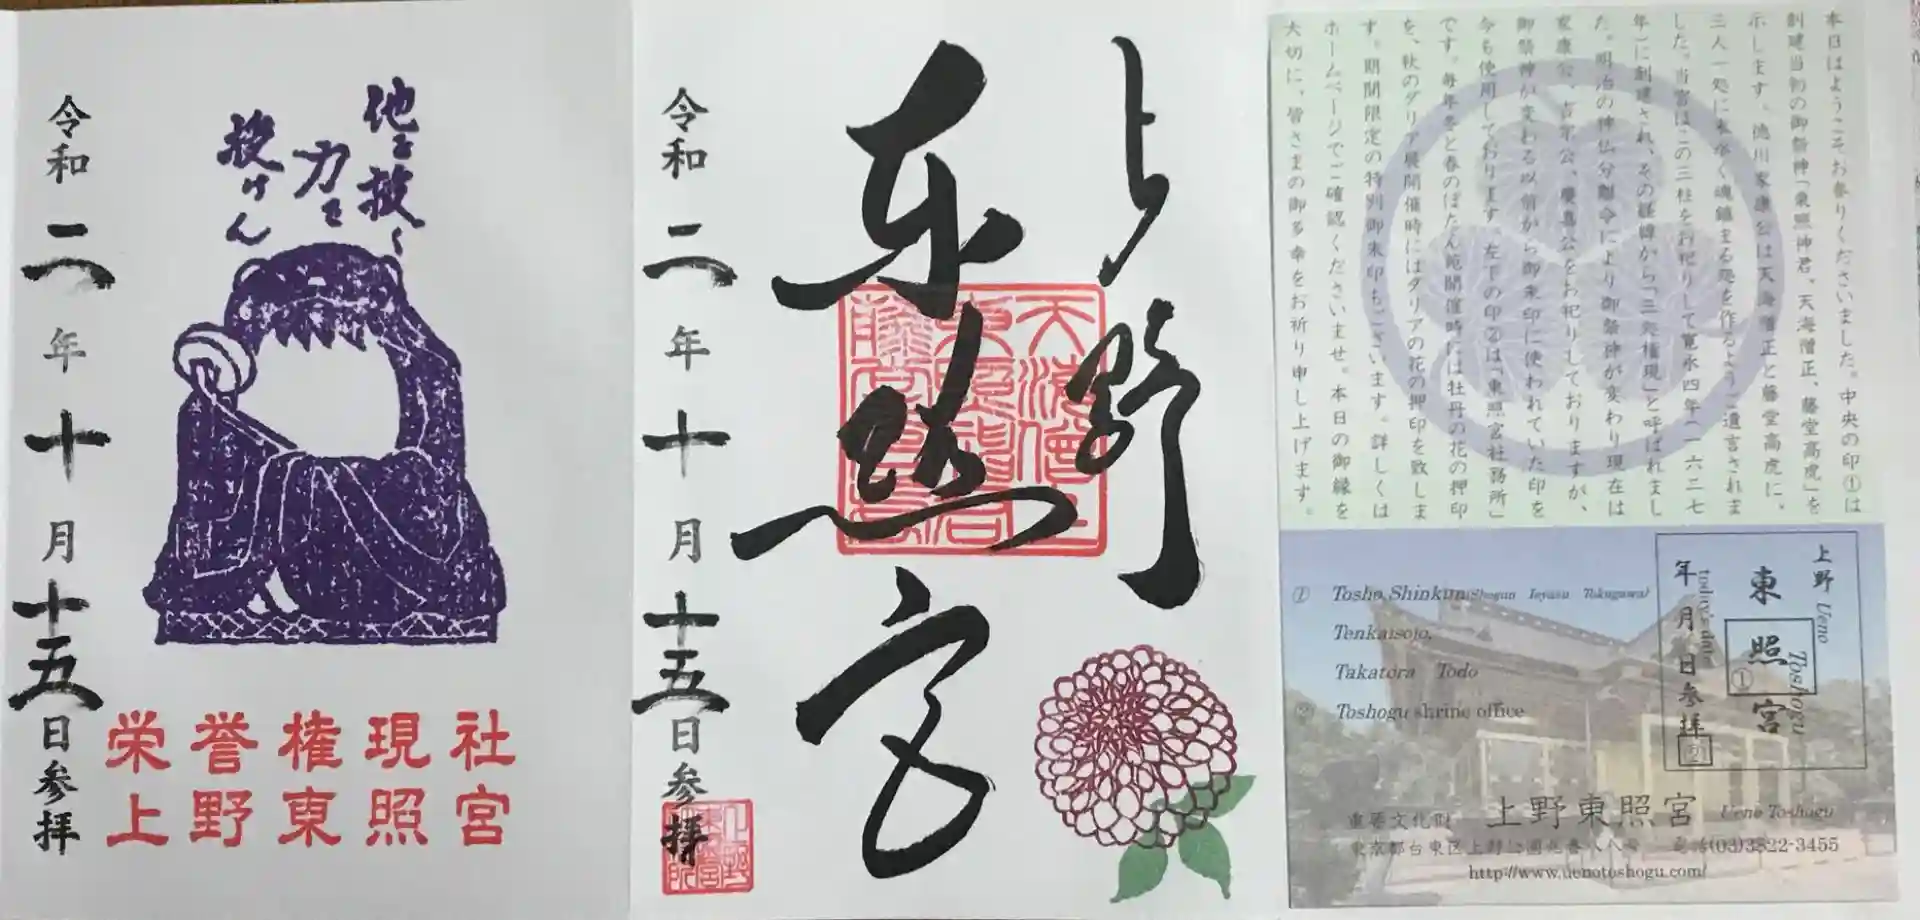 他を抜く
力を
授けん
令和二年十月十五日参拝
栄誉権現社
上野東照宮
上野
東照宮
令和二年十月十五日参拝
本日はようこそお参りくださいました。中央の印①は
創建当初の御祭神「東照神君、天海僧正、藤堂高虎」を
示します。徳川家康公は天海僧正と藤堂高虎に、
三人一処に末永く魂鎮まる処を作るようご遺言されま
した。当宮はこの三柱をお祀りして寛永四年(一六二七
年)に創建され、その経緯から「三処権現」と呼ばれまし
た。明治の神仏分離令により御祭神が変わり現在は
家康公、吉宗公、慶喜公をお祀りしておりますが、
御祭神が変わる以前から御朱印に使われていた印を
今も使用しております。左下の印②は「東照宮社務所」
です。毎年冬と春のぼたん苑開催時には牡丹の花の押印
を、秋のダリア展開催時にはダリアの花の押印を致しま
す。期間限定の特別御朱印もございます。詳しくは
ホームページでご確認くださいませ。本日の御縁を
大切に、皆さまの御多幸をお祈り申し上げます。
① Tosho Shinkun(Shogun Ieyasu Tokugawa)
Tenkaisojo,
Takatora Todo
② Toshogu shrine office
上野 Ueno
東照宮 Toshogu
①
年月日参拝 today's date
②
重要文化財 上野東照宮 Ueno Toshogu
東京都台東区上野公園 電話(03)3822-3455
http://www.uenotoshogu.com/